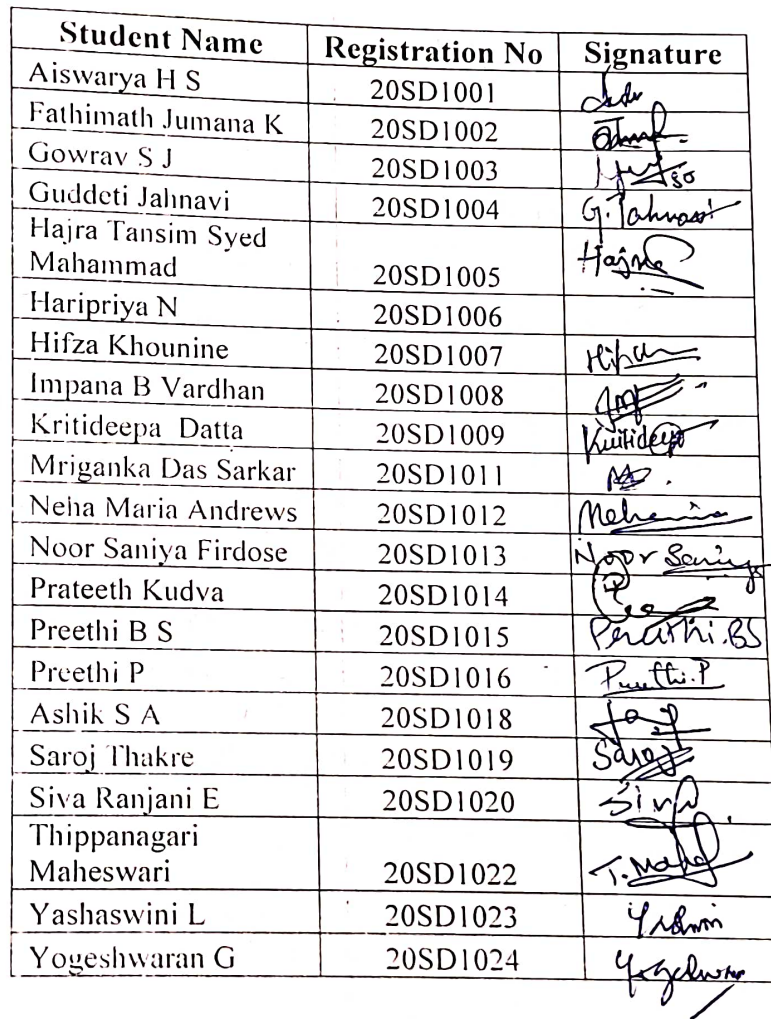 Student Name Registration No Signature
Aiswarya H S 20SD1001
Fathimath Jumana K 20SD1002
Gowrav S J 20SD1003
Guddeti Jahnavi 20SD1004 G. Jahnavi
Hajra Tansim Syed
Mahammad 20SD1005 Hajra
Haripriya N 20SD1006
Hifza Khounine 20SD1007
Impana B Vardhan 20SD1008
Kritideepa Datta 20SD1009
Mriganka Das Sarkar 20SD1011
Neha Maria Andrews 20SD1012
Noor Saniya Firdose 20SD1013 Noor Saniya
Prateeth Kudva 20SD1014
Preethi B S 20SD1015 Preethi.BS
Preethi P 20SD1016 Preethi.P
Ashik S A 20SD1018
Saroj Thakre 20SD1019 Saroj
Siva Ranjani E 20SD1020
Thippanagari
Maheswari 20SD1022
Yashaswini L 20SD1023
Yogeshwaran G 20SD1024